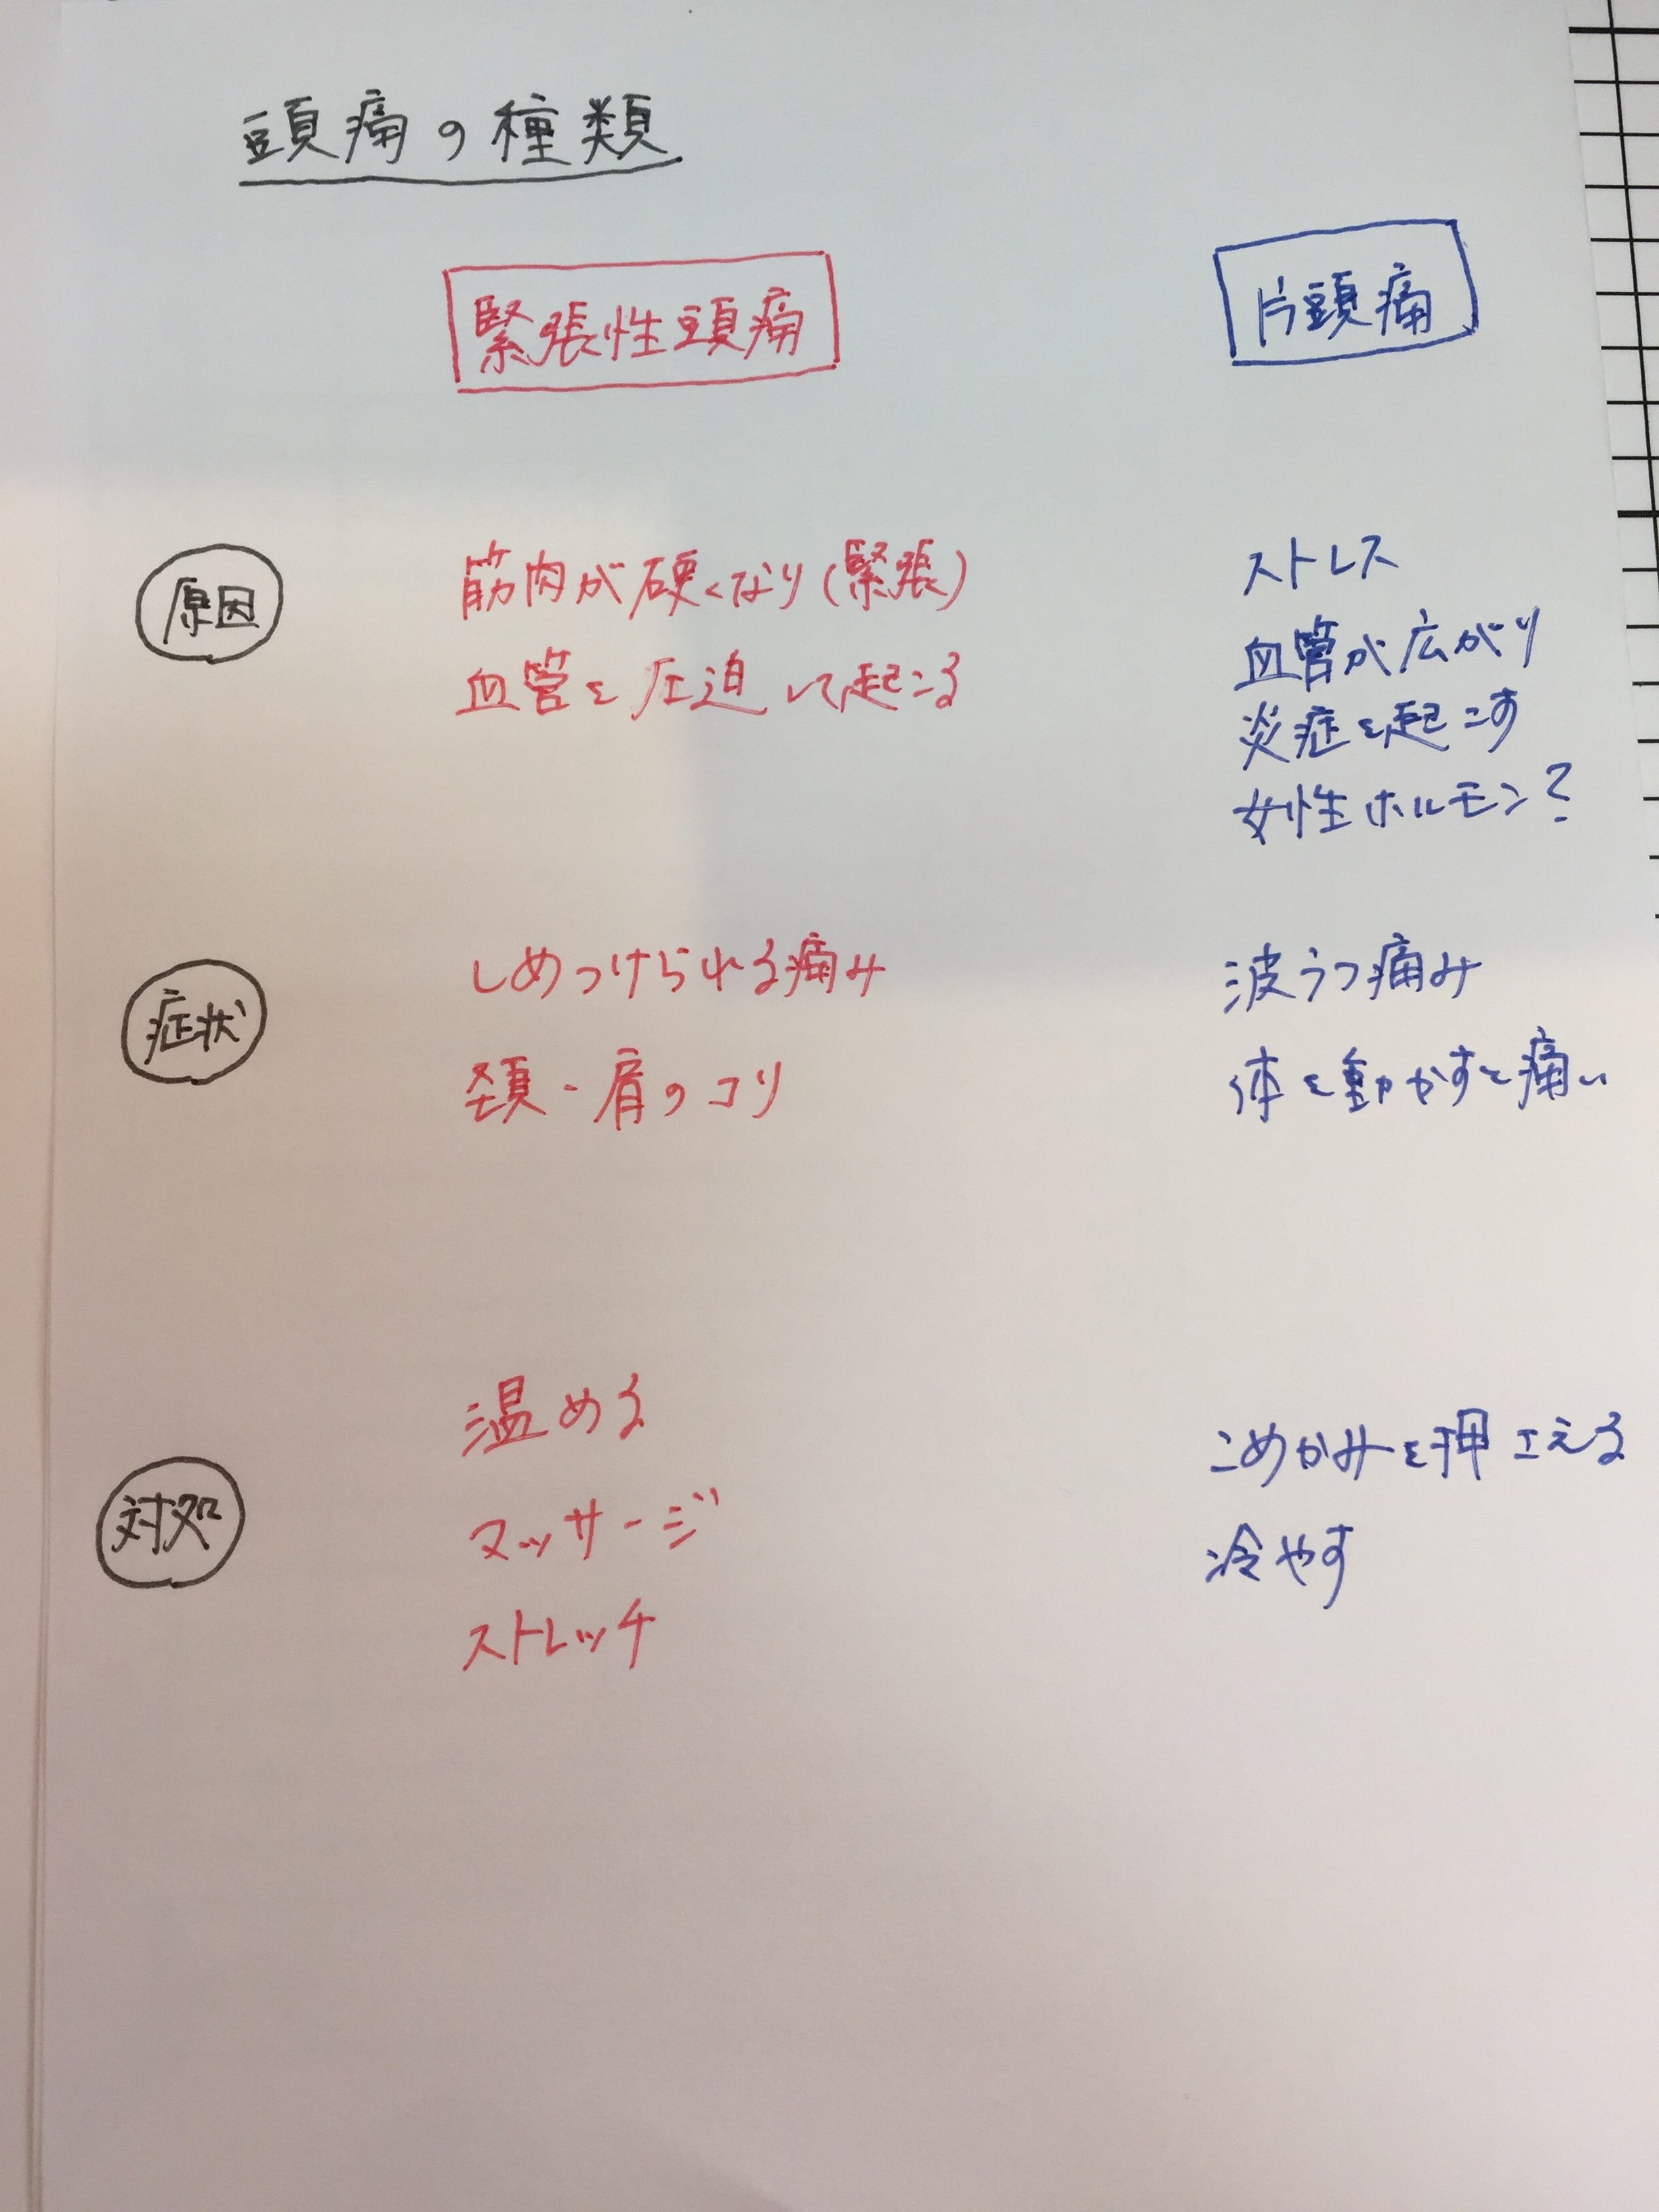 頭痛の種類
緊張性頭痛
片頭痛
原因
筋肉が硬くなり(緊張)
血管を圧迫して起こる
ストレス
血管が広がり
炎症を起こす
女性ホルモン?
症状
しめつけられる痛み
頚・肩のコリ
波うつ痛み
体を動かすと痛い
対処
温める
マッサージ
ストレッチ
こめかみを押エえる
冷やす